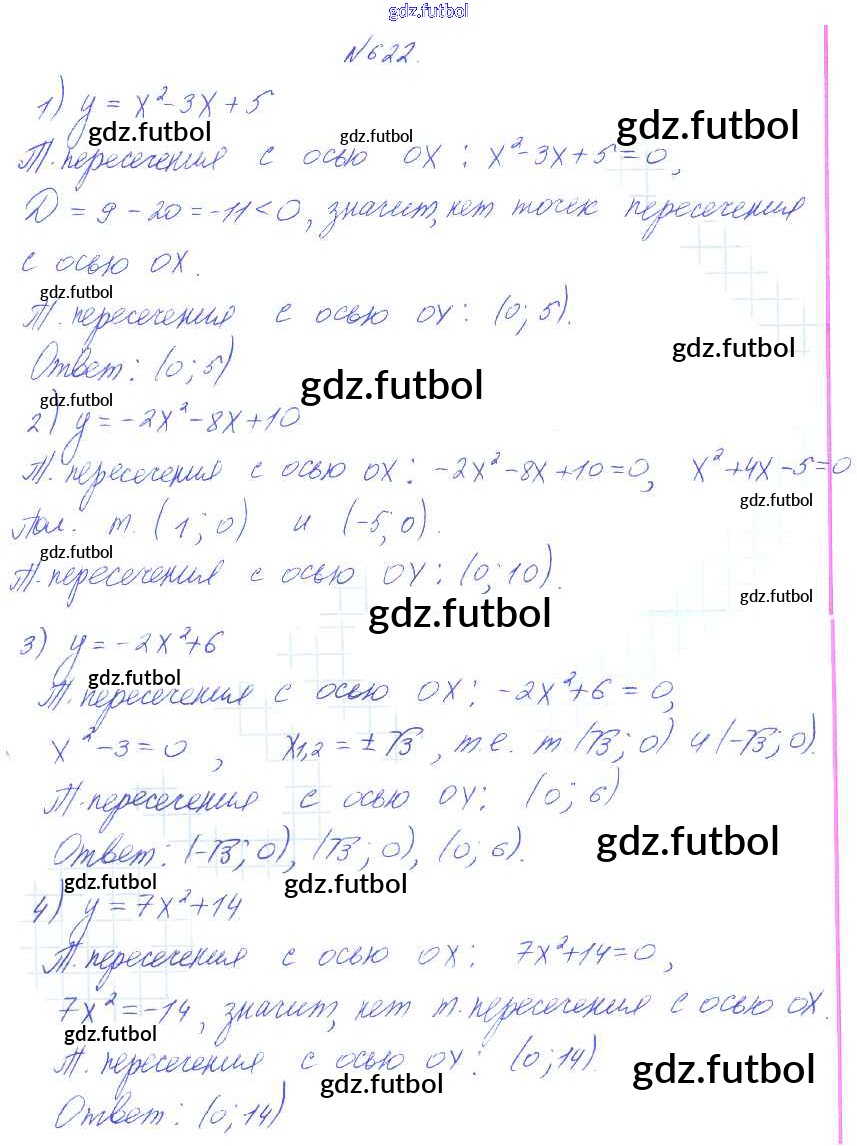 gdz.futbol
№622.
1) y = x² - 3x + 5
gdz.futbol gdz.futbol gdz.futbol
Т. пересечения с осью OX : x² - 3x + 5 = 0,
D = 9 - 20 = -11 < 0, значит, нет точек пересечения
с осью OX.
gdz.futbol
Т. пересечения с осью OY : (0; 5).
gdz.futbol
Ответ : (0; 5)
gdz.futbol gdz.futbol
2) y = -2x² - 8x + 10
Т. пересечения с осью OX : -2x² - 8x + 10 = 0, x² + 4x - 5 = 0
gdz.futbol
Пол. т. (1; 0) и (-5; 0).
gdz.futbol
Т. пересечения с осью OY : (0; 10).
gdz.futbol gdz.futbol
3) y = -2x² + 6
gdz.futbol
Т. пересечения с осью OX : -2x² + 6 = 0,
x² - 3 = 0, x₁,₂ = ± √3, т.е. т (√3; 0) и (-√3; 0).
Т. пересечения с осью OY : (0; 6)
Ответ : (-√3; 0), (√3; 0), (0; 6).
gdz.futbol gdz.futbol gdz.futbol
4) y = 7x² + 14
Т. пересечения с осью OX : 7x² + 14 = 0,
7x² = -14, значит, нет т. пересечения с осью OX.
gdz.futbol
Т. пересечения с осью OY : (0; 14).
gdz.futbol gdz.futbol
Ответ : (0; 14)